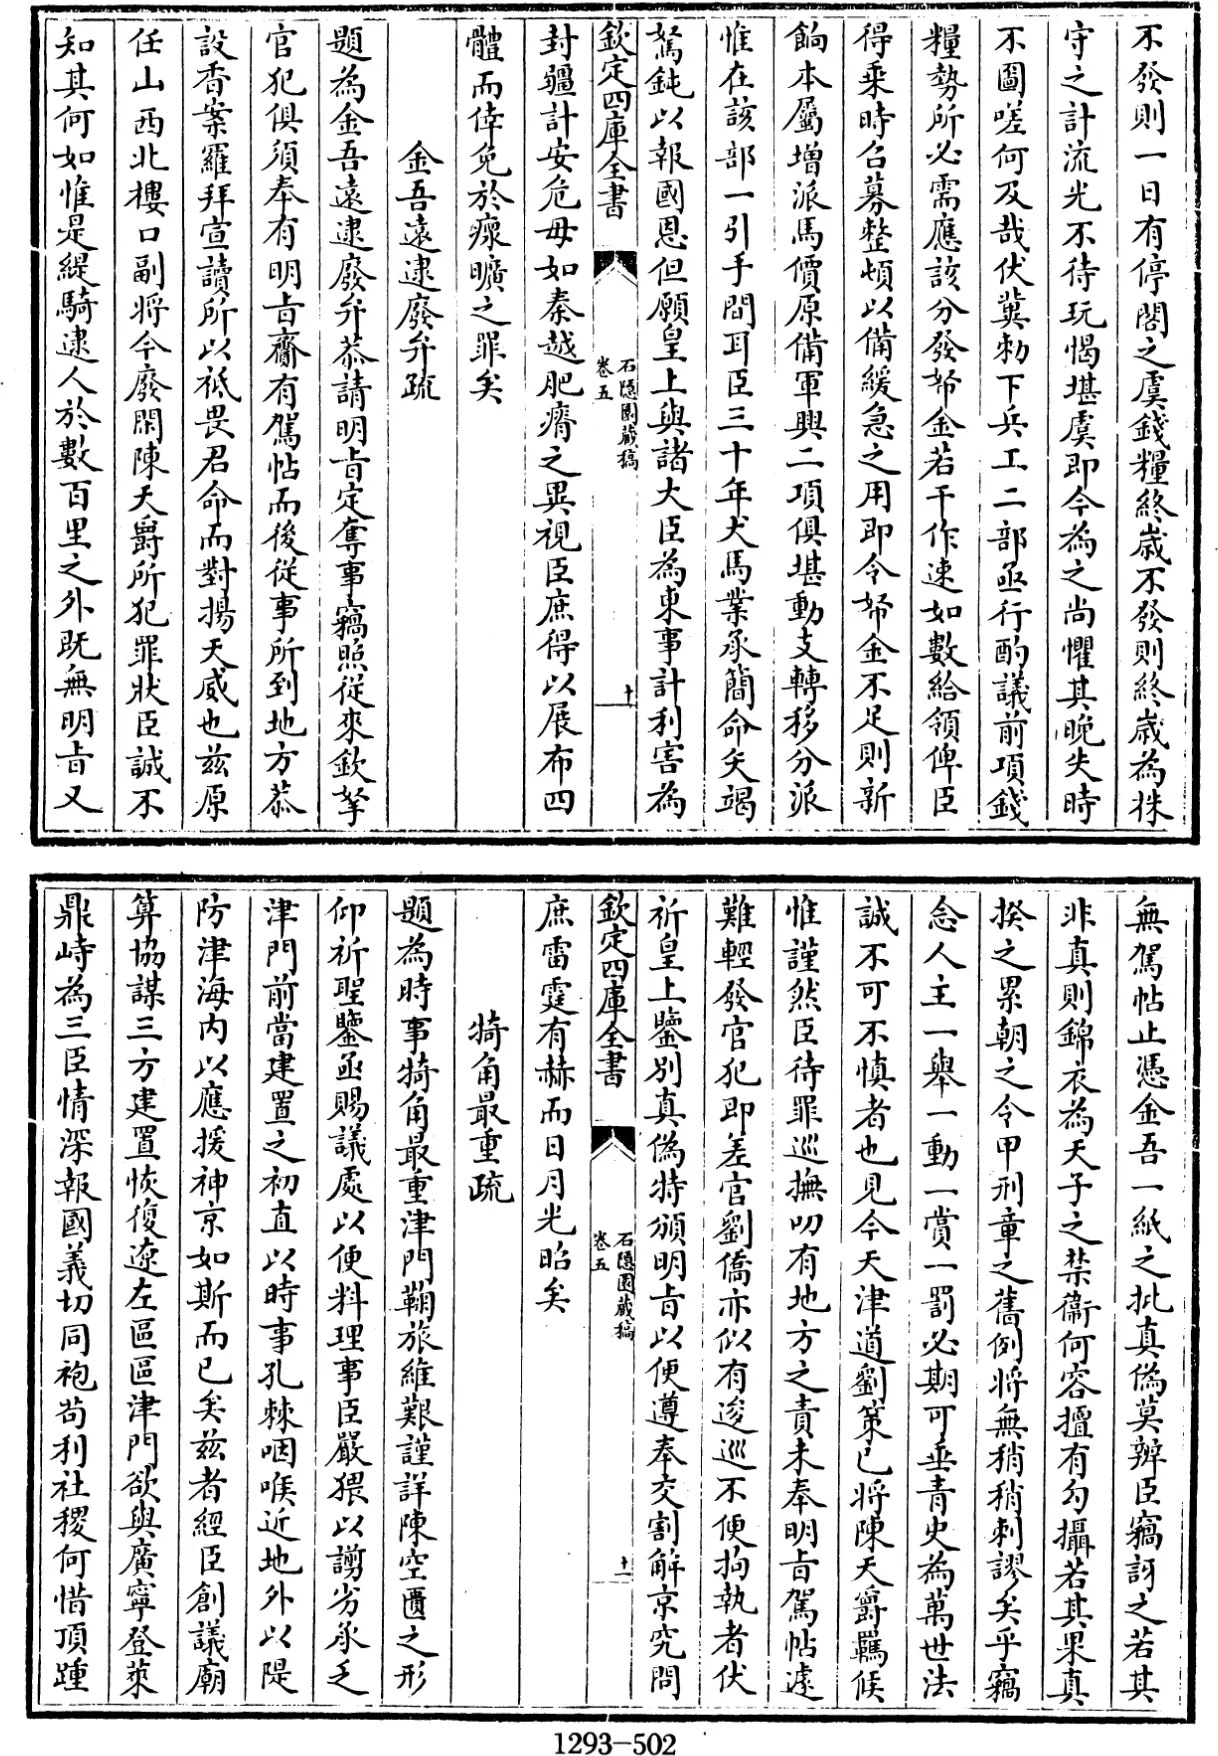 不發則一日有停閣之虞錢糧終歲不發則終歲為株
守之計流光不待玩愒堪虞即今為之尚懼其晚失時
不圖嗟何及哉伏冀勑下兵工二部亟行酌議前項錢
糧勢所必需應該分發帑金若干作速如數給領俾臣
得乘時召募整頓以備緩急之用即今帑金不足則新
餉本屬增派馬價原備軍興二項俱堪動支轉移分派
惟在該部一引手間耳臣三十年犬馬業承簡命矢竭
駑鈍以報國恩但願皇上與諸大臣為東事計利害為
欽定四庫全書
石隱園藏稿
卷五
十
封疆計安危毋如秦越肥瘠之異視臣庶得以展布四
體而倖免於瘝曠之罪矣
金吾遠逮廢弁疏
題為金吾遠逮廢弁恭請明旨定奪事竊照從來欽拏
官犯俱須奉有明旨齎有駕帖而後從事所到地方恭
設香案羅拜宣讀所以祗畏君命而對揚天威也兹原
任山西北樓口副將今廢閒陳天爵所犯罪狀臣誠不
知其何如惟是緹騎逮人於數百里之外既無明旨又
無駕帖止憑金吾一紙之批真偽莫辨臣竊訝之若其
非真則錦衣為天子之禁衞何容擅有勾攝若其果真
揆之累朝之令甲刑章之舊例將無稍稍刺謬矣乎竊
念人主一舉一動一賞一罰必期可垂青史為萬世法
誠不可不慎者也見今天津道劉策已將陳天爵羈候
惟謹然臣待罪巡撫叨有地方之責未奉明旨駕帖遽
難輕發官犯即差官劉僑亦似有逡巡不便拘執者伏
祈皇上鑒别真偽特頒明旨以便遵奉交割解京究問
欽定四庫全書
石隱園藏稿
卷五
十一
庶雷霆有赫而日月光昭矣
犄角最重疏
題為時事犄角最重津門鞠旅維艱謹詳陳空匱之形
仰祈聖鑒亟賜議處以便料理事臣嚴猥以謭劣承乏
津門前當建置之初直以時事孔棘咽喉近地外以隄
防津海内以應援神京如斯而已矣兹者經臣創議廟
算協謀三方建置恢復遼左區區津門欲與廣寧登萊
鼎峙為三臣情深報國義切同袍苟利社稷何惜頂踵
1293-502